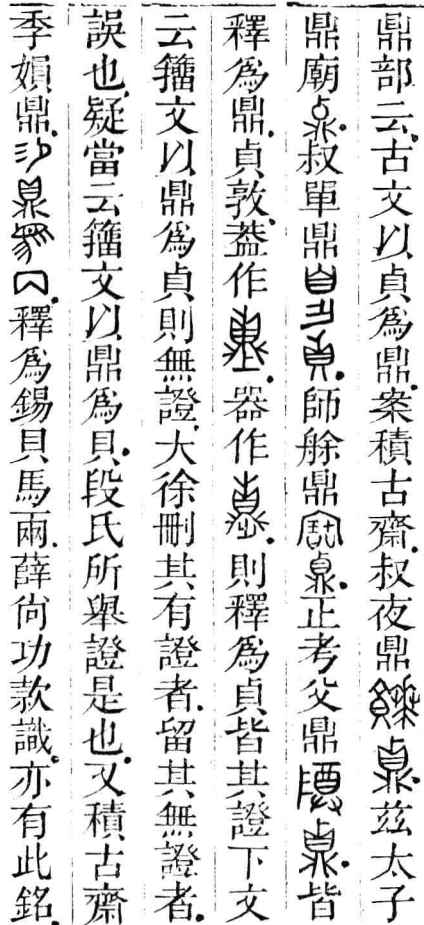 鼎部云古文以貞爲鼎案積古齋叔夜鼎茲太子
鼎廟叔單鼎師艅鼎正考父鼎皆
釋爲鼎貞敦葢作器作則釋爲貞皆其證下文
云籒文以鼎爲貞則無證大徐刪其有證者留其無證者
誤也疑當云籒文以鼎爲貝段氏所舉證是也又積古齋
季媍鼎釋爲錫貝馬兩薛尙功款識亦有此銘